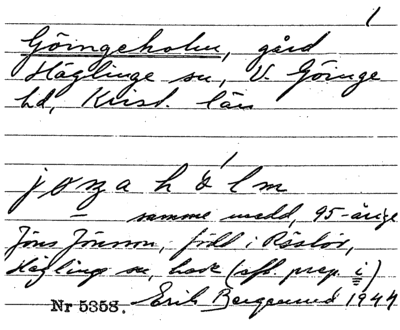 1
Göingeholm, gård
Häglinge sn, V. Göinge
hd, Krist. län
jøŋahòlm
samme medd, 95-årige
Jöns Jönsson, född i Röslöv,
Häglinge sn, hade (aff. prep. i)
Nr 5358. Erik Berggrund 1944